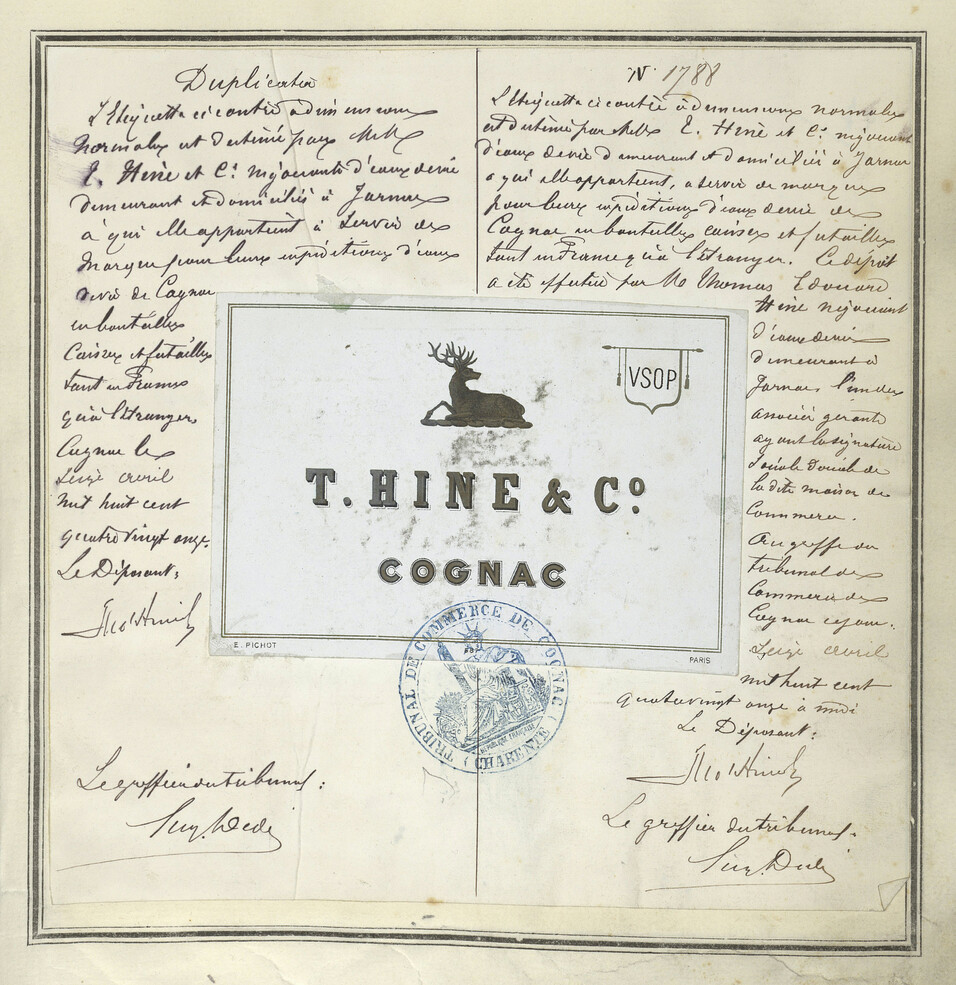 Duplicata
L'Etiquette ci contre à dimensions
normales est destiné par MM
T. Hine et Cie négociants d'eaux de vie
demeurant et domiciliés à Jarnac
à qui elle appartient à servir de
marque pour leurs expéditions d'eaux
de vie de Cognac
en bouteilles
Caisses et futailles
tant en France
qu'à l'étranger
Cognac le
Seize avril
mil huit cent
quatre vingt onze.
Le Déposant:
Le greffier du tribunal:
No 1788
L'Etiquette ci contre à dimensions normales
est destiné par MM T. Hine et Cie négociants
d'eaux de vie demeurant et domiciliés à Jarnac
à qui elle appartient, à servir de marque
pour leurs expéditions d'eaux de vie de
Cognac en bouteilles caisses et futailles
tant en France qu'à l'étranger. Ce dépôt
a été effectué par Mr Thomas Edouard
Hine négociant
d'eaux de vie
demeurant à
Jarnac l'un des
associés gérants
ayant la signature
sociale de
la dite maison de
Commerce.
Au greffe du
tribunal de
Commerce de
Cognac ce jour:
Seize avril
mil huit cent
quatre vingt onze à midi
Le Déposant:
Le greffier du tribunal:
VSOP
T. HINE & Co.
COGNAC
E. PICHOT
PARIS
TRIBUNAL DE COMMERCE DE COGNAC
(CHARENTE)
RÉPUBLIQUE FRANÇAISE